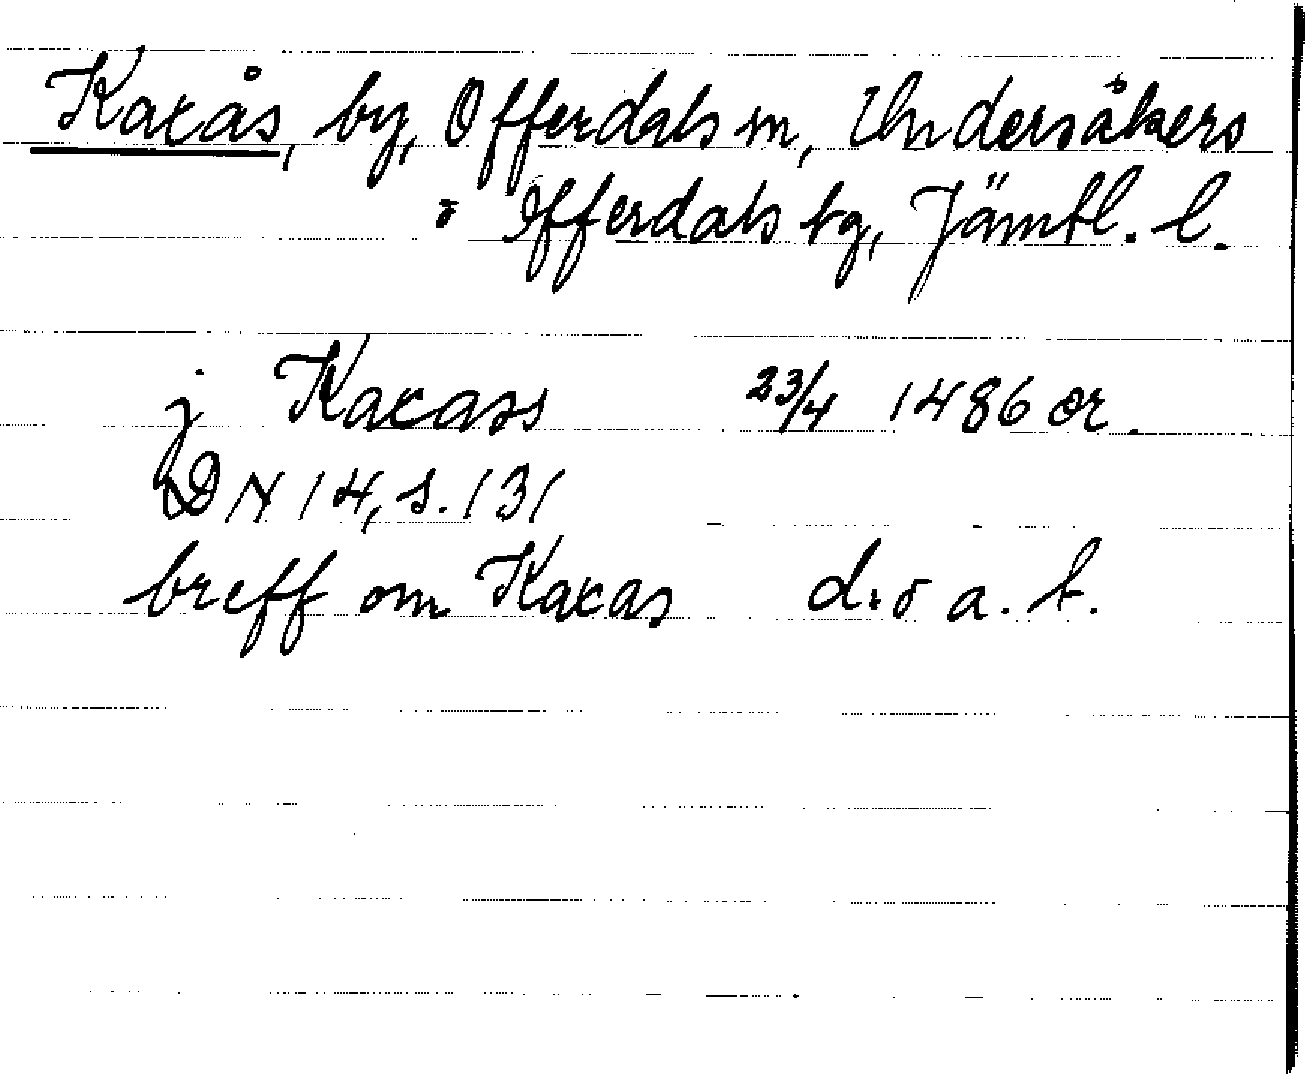 Kaxås, by, Offerdals sn, Undersåkers
o Offerdals tg, Jämtl. l.
j Kaxass 23/4 1486 or.
DN 14, s. 131
breff om Kaxas d:o a. t.